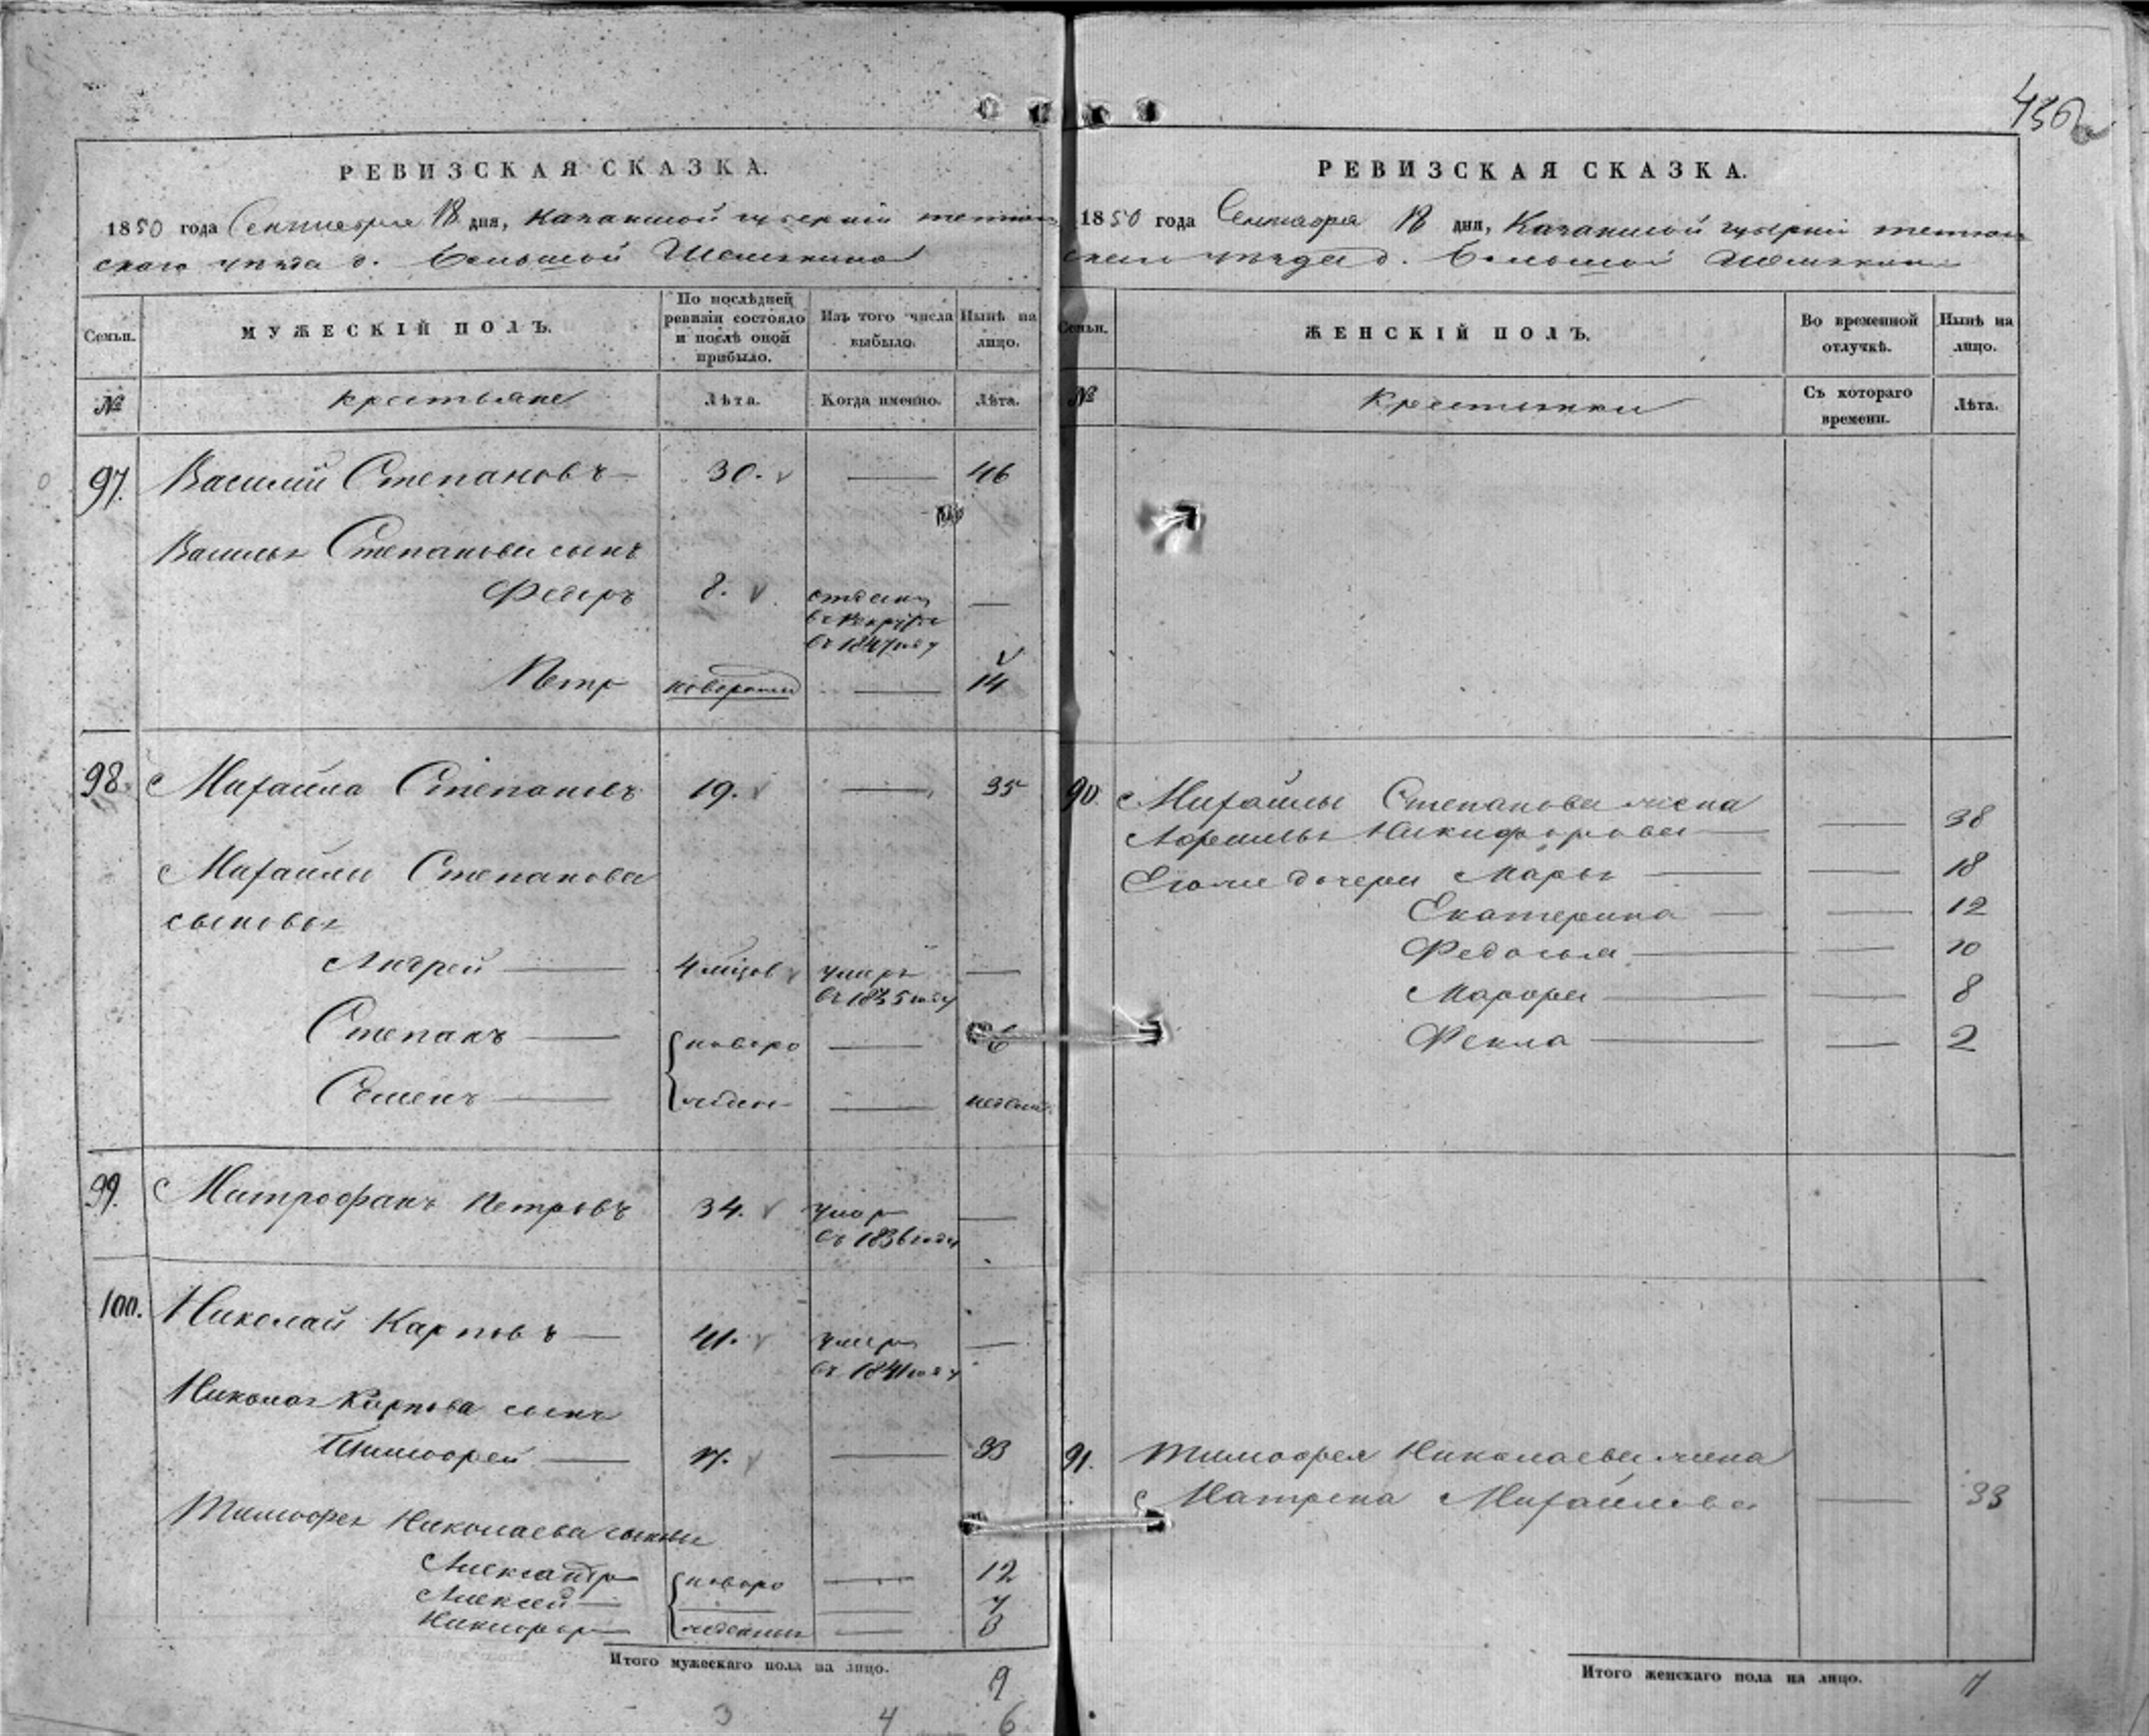 436
РЕВИЗСКАЯ СКАЗКА.
1850 года Сентября 18 дня, Казанской губерніи тетюш
скаго уѣзда д. Большой Шемякиной
Семьи. МУЖЕСКІЙ ПОЛЪ. По послѣдней ревизіи состояло и послѣ оной прибыло. Изъ того числа выбыло. Нынѣ на лицо.
№ крестьяне Лѣта. Когда именно. Лѣта.
97. Василій Степановъ 30. — 46
Василья Степанова сынъ
Федоръ 8. отданъ —
въ рекруты
въ 1847 году
Петр новорожд — 14
98. Михаила Степановъ 19. — 35
Михаилы Степанова
сыновья
Андрей — 4 мѣсов умеръ —
въ 1835 году
Степанъ — новоро — 6
Семенъ — жден — недель
99. Митрофанъ Петровъ 34. умер —
въ 1836 году
100. Николай Карповъ — 41. умеръ —
въ 1841 году
Николая Карпова сынъ
Тимофей — 17. — 33
Тимофея Николаева сыновья
Александръ новоро — 12
Алексей — — 7
Никифоръ жденные — 3
Итого мужескаго пола на лицо. 9
3 4 6
РЕВИЗСКАЯ СКАЗКА.
1850 года Сентября 18 дня, Казанской губерніи тетюш
скаго уѣзда д. Большой Шемякиной
Семьи. ЖЕНСКІЙ ПОЛЪ. Во временной отлучкѣ. Нынѣ на лицо.
№ Крестьянки Съ котораго времени. Лѣта.
90. Михайлы Степанова жена
Афимья Никифорова — — 38
Егоже дочери Марья — — 18
Екатерина — — 12
Федосья — — 10
Марфа — — 8
Фекла — — 2
91. Тимофея Николаева жена
Матрена Михайлова — 33
Итого женскаго пола на лицо. 7